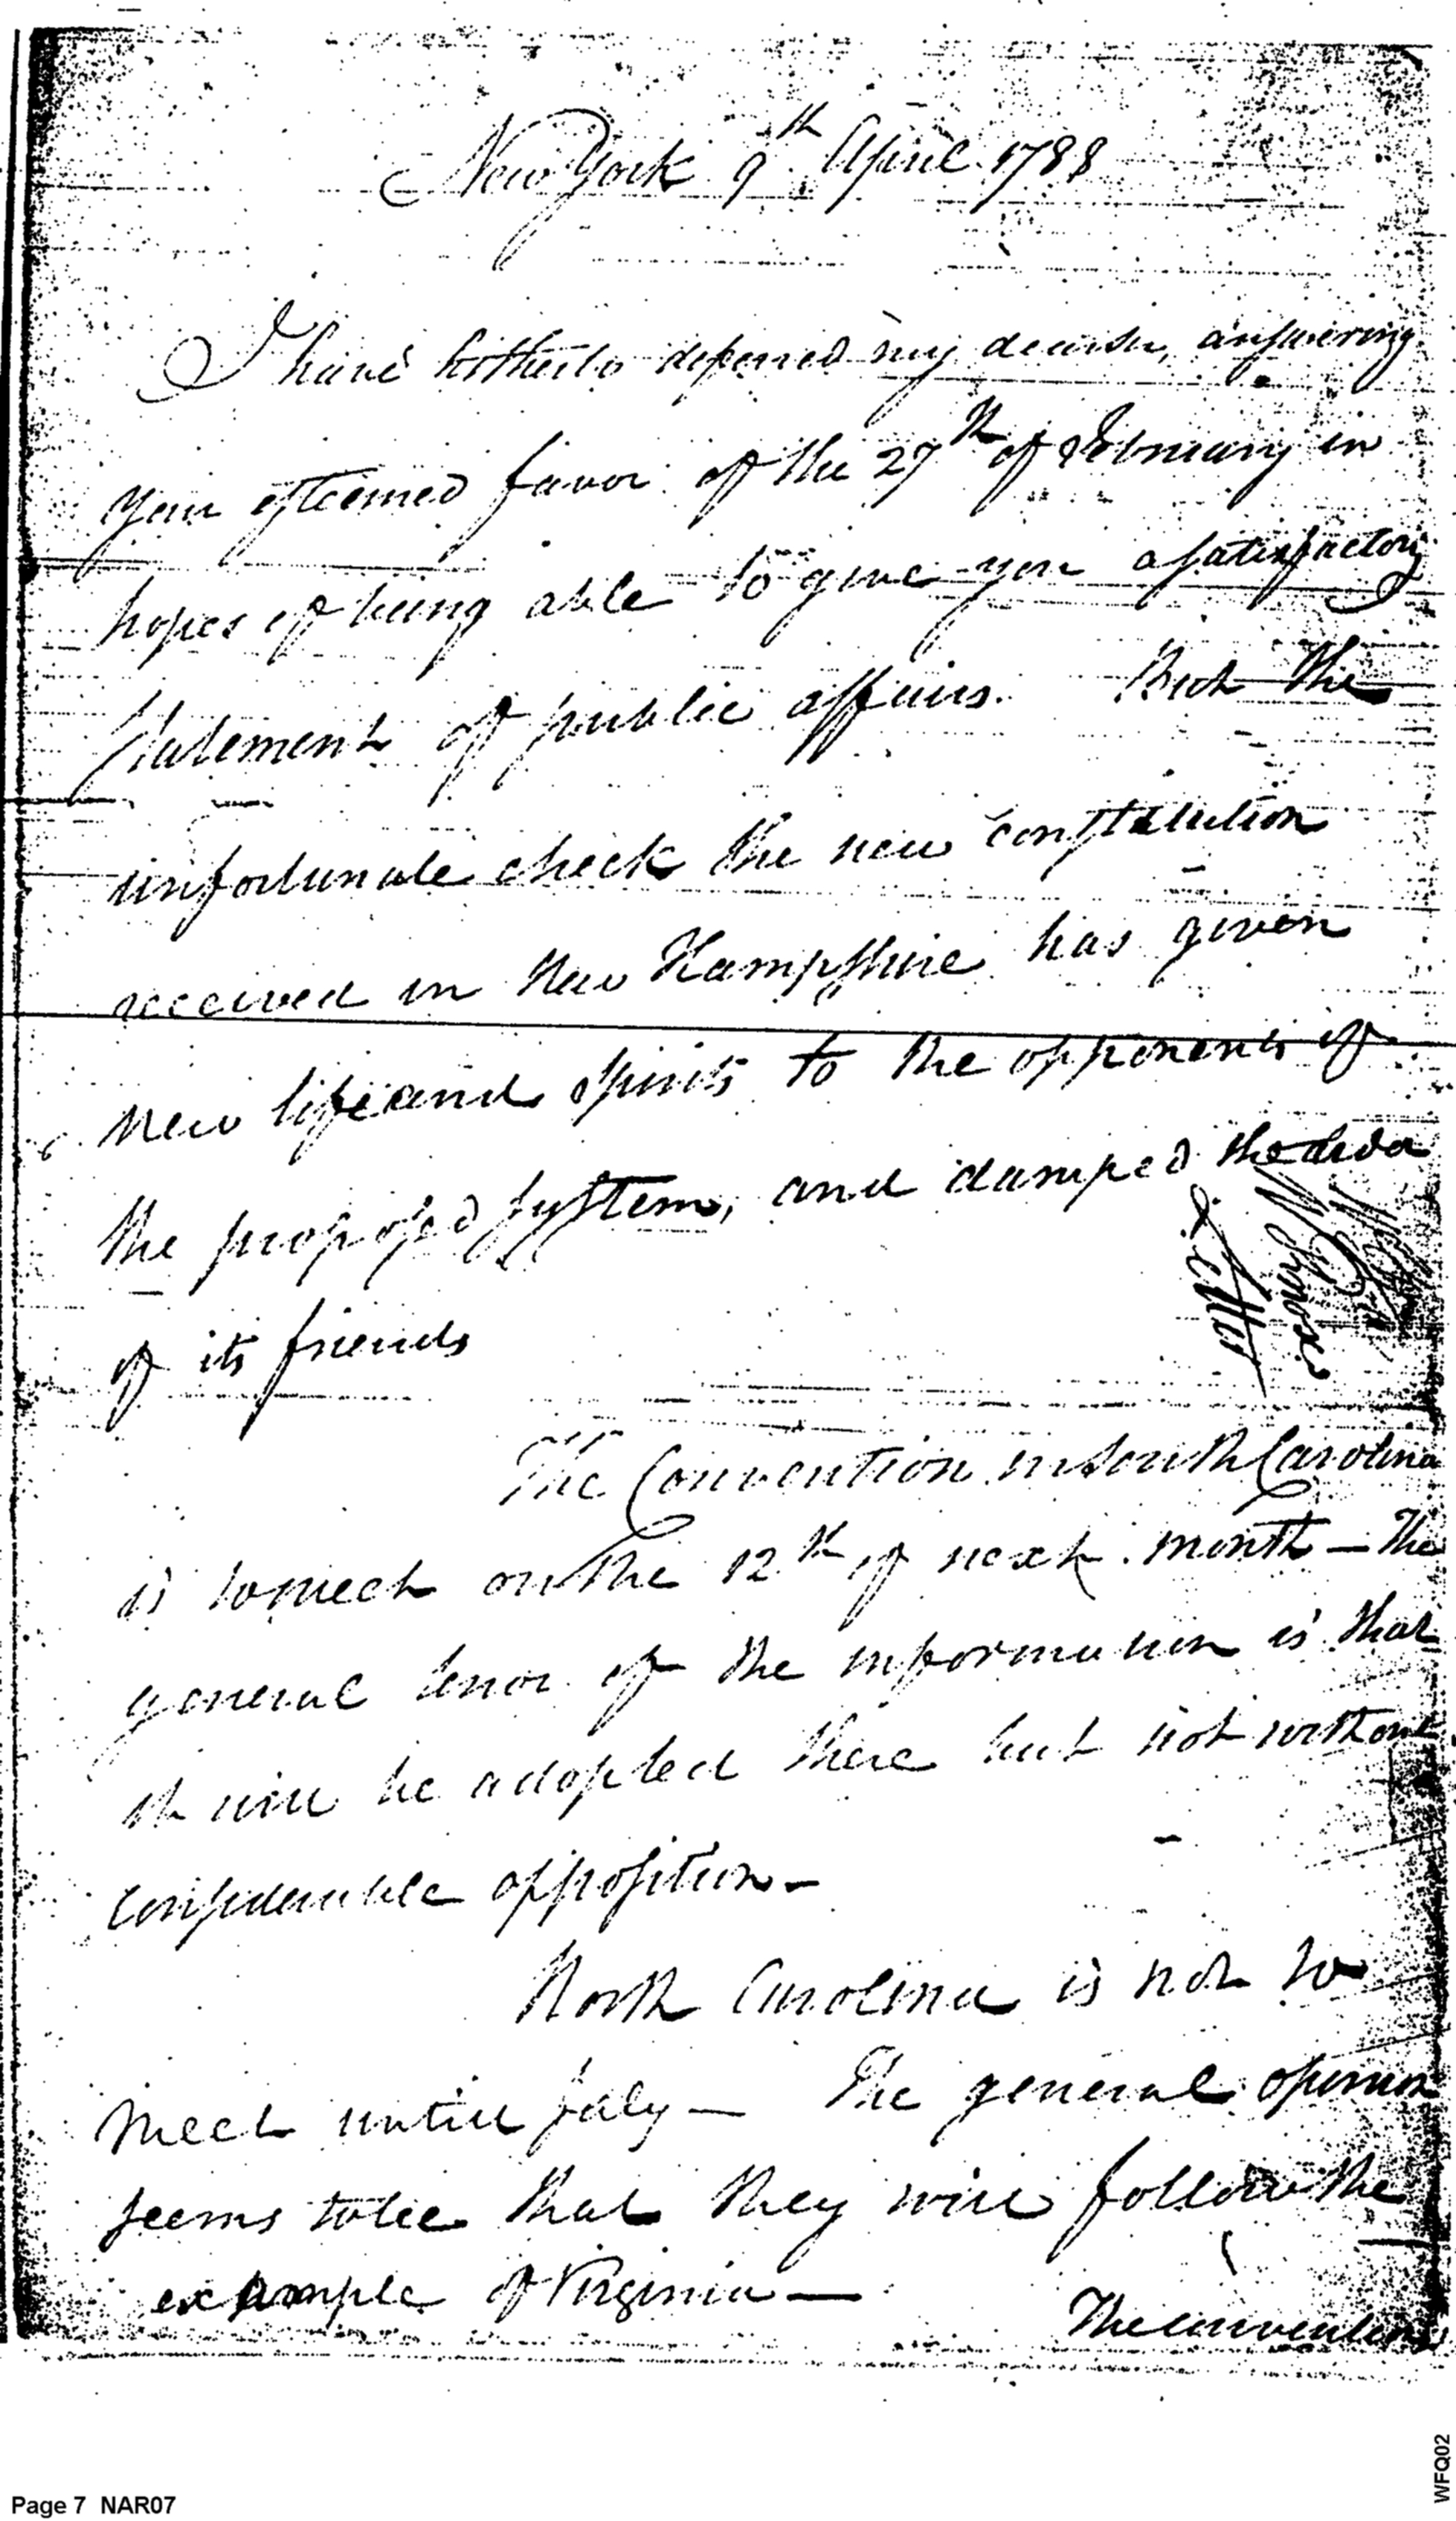 New York 9th April 1788
I have hitherto deferred my dear sir, answering
your esteemed favor of the 27th of February in
hopes of being able to give you a satisfactory
statement of public affairs. But the
unfortunate check the new constitution
received in New Hampshire has given
new life and spirits to the opponents of
the proposed system, and damped the ardor
of its friends
The Convention in South Carolina
is to meet on the 12th of next month — The
general tenor of the information is that
it will be adopted there but not without
considerable opposition —
North Carolina is not to
meet untill July — The general opinion
seems to be that they will follow the
example of Virginia —
The convention
Page 7 NAR07
WFQ02